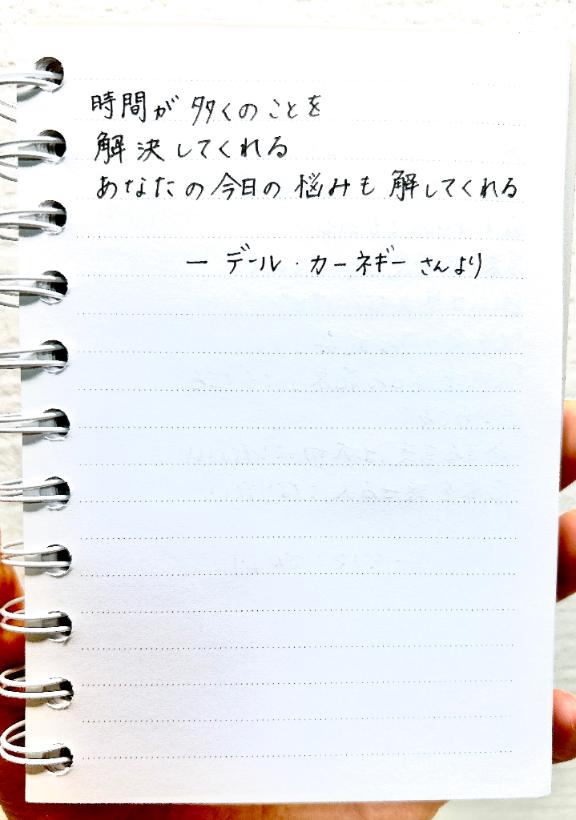 時間が多くのことを
解決してくれる
あなたの今日の悩みも解してくれる
ー デール・カーネギーさんより